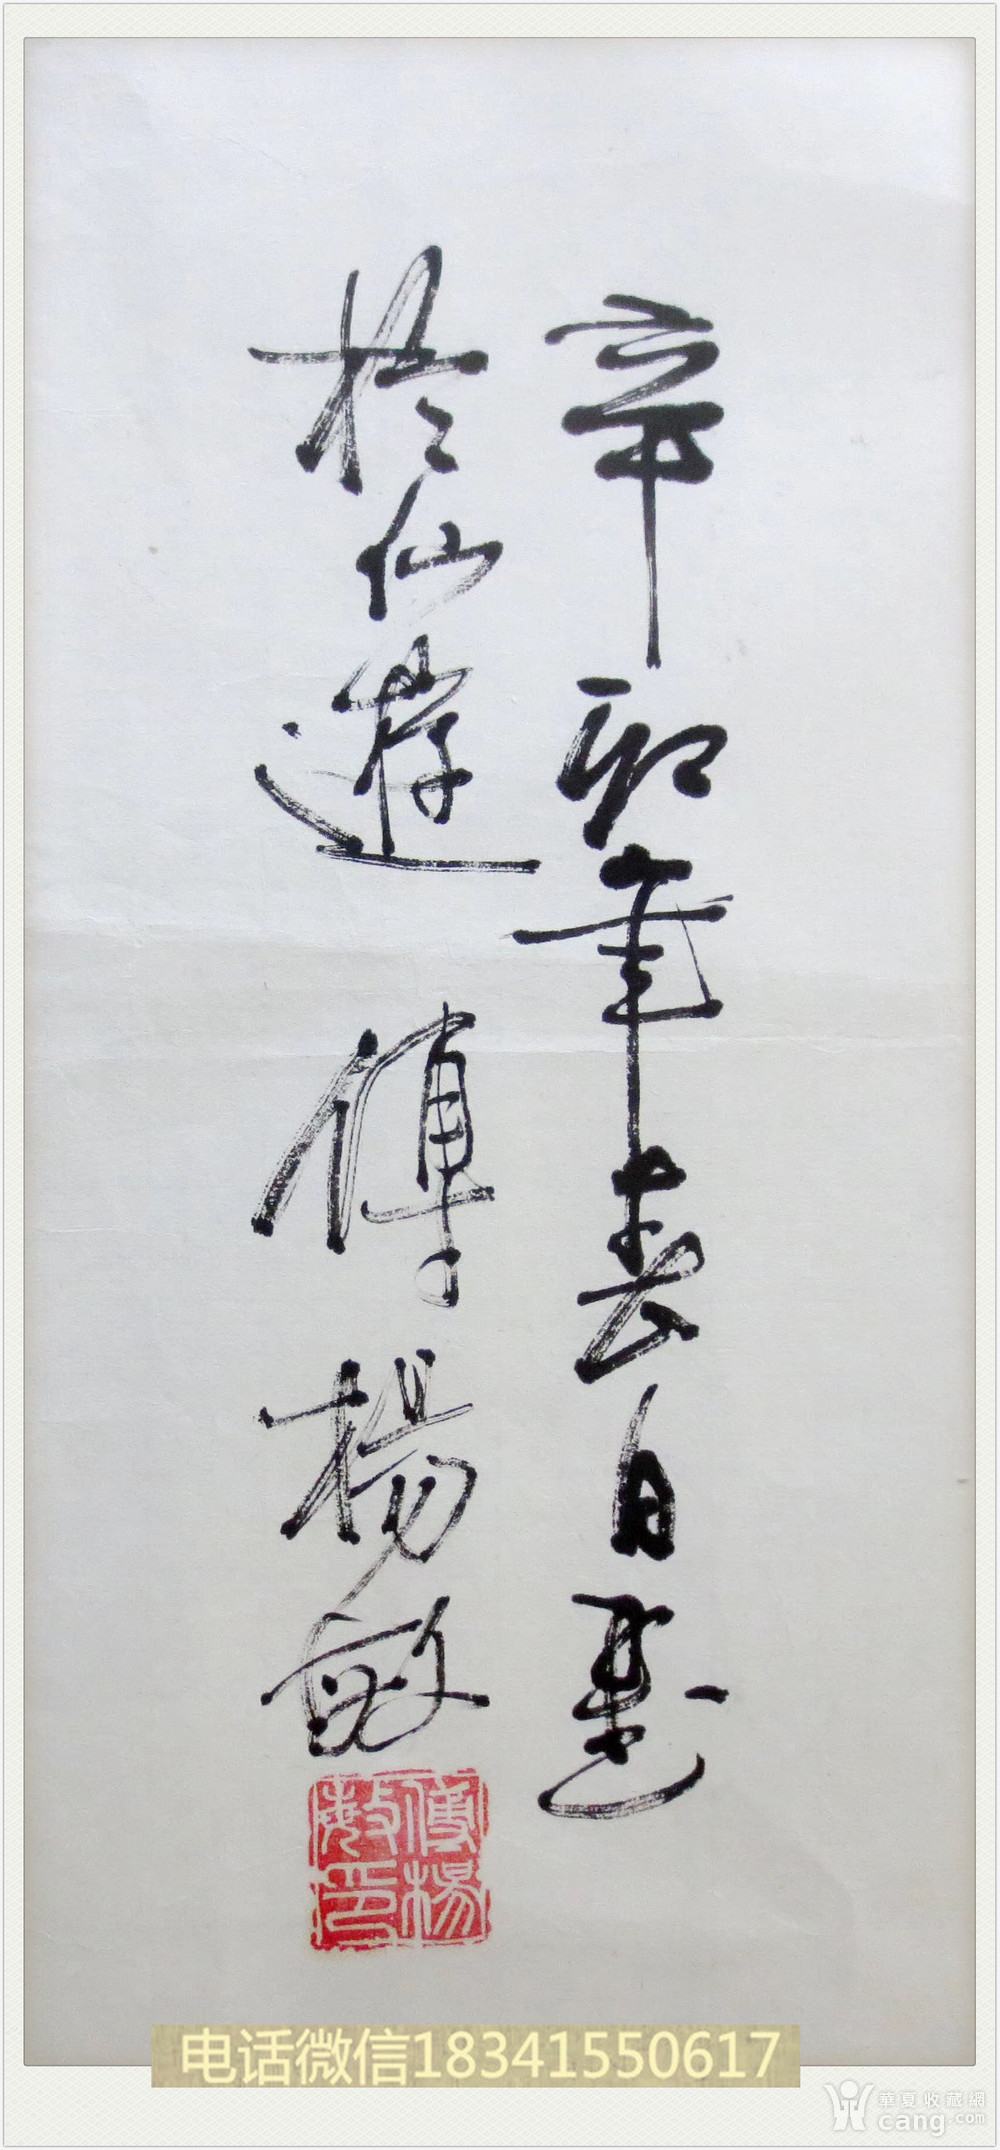 辛卯年春日
於仙遊 傅楊敏
傅楊
敏印
电话微信18341550617
華夏收藏網
cang.com